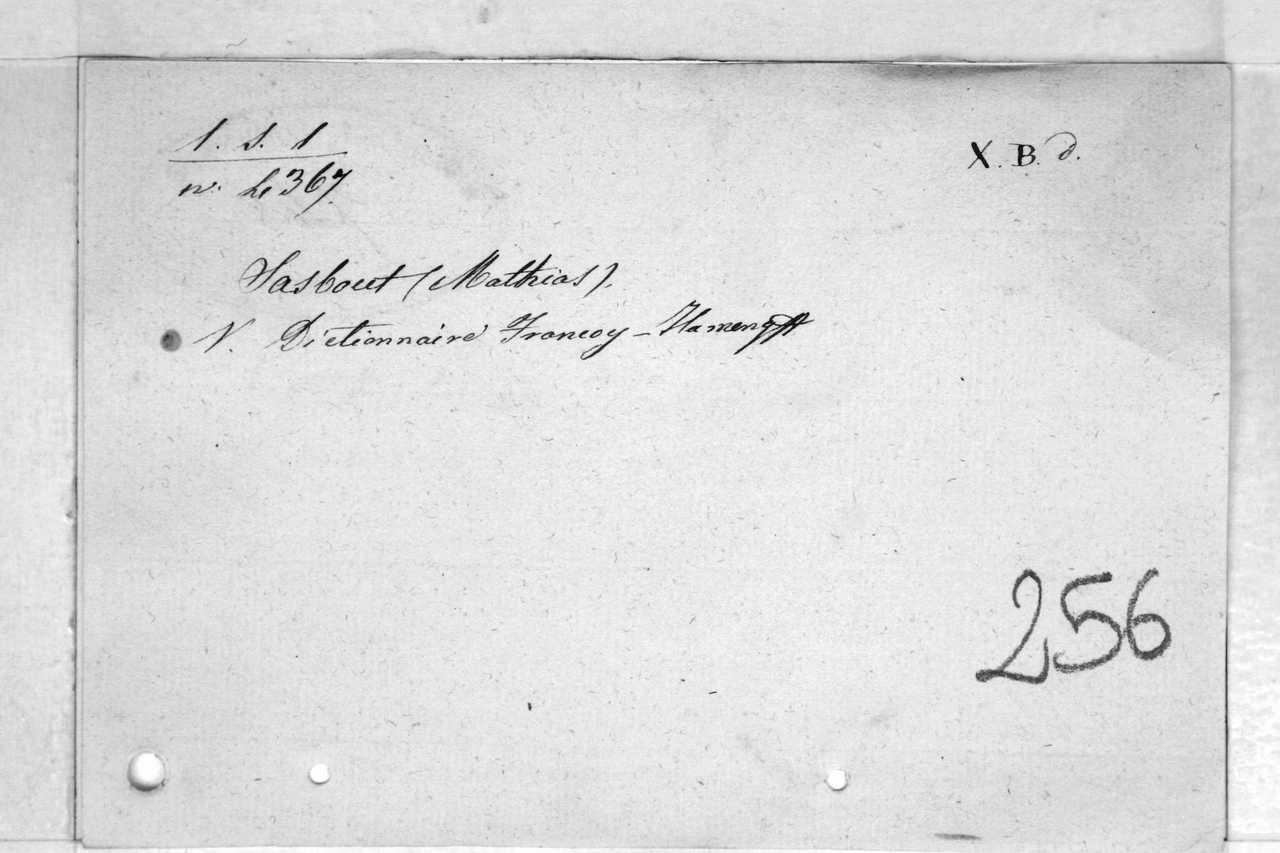 1. S. 1
X. B. d.
nº. h 367.
Sasbout (Mathias).
V. Dictionnaire Francoy-Flameng
256